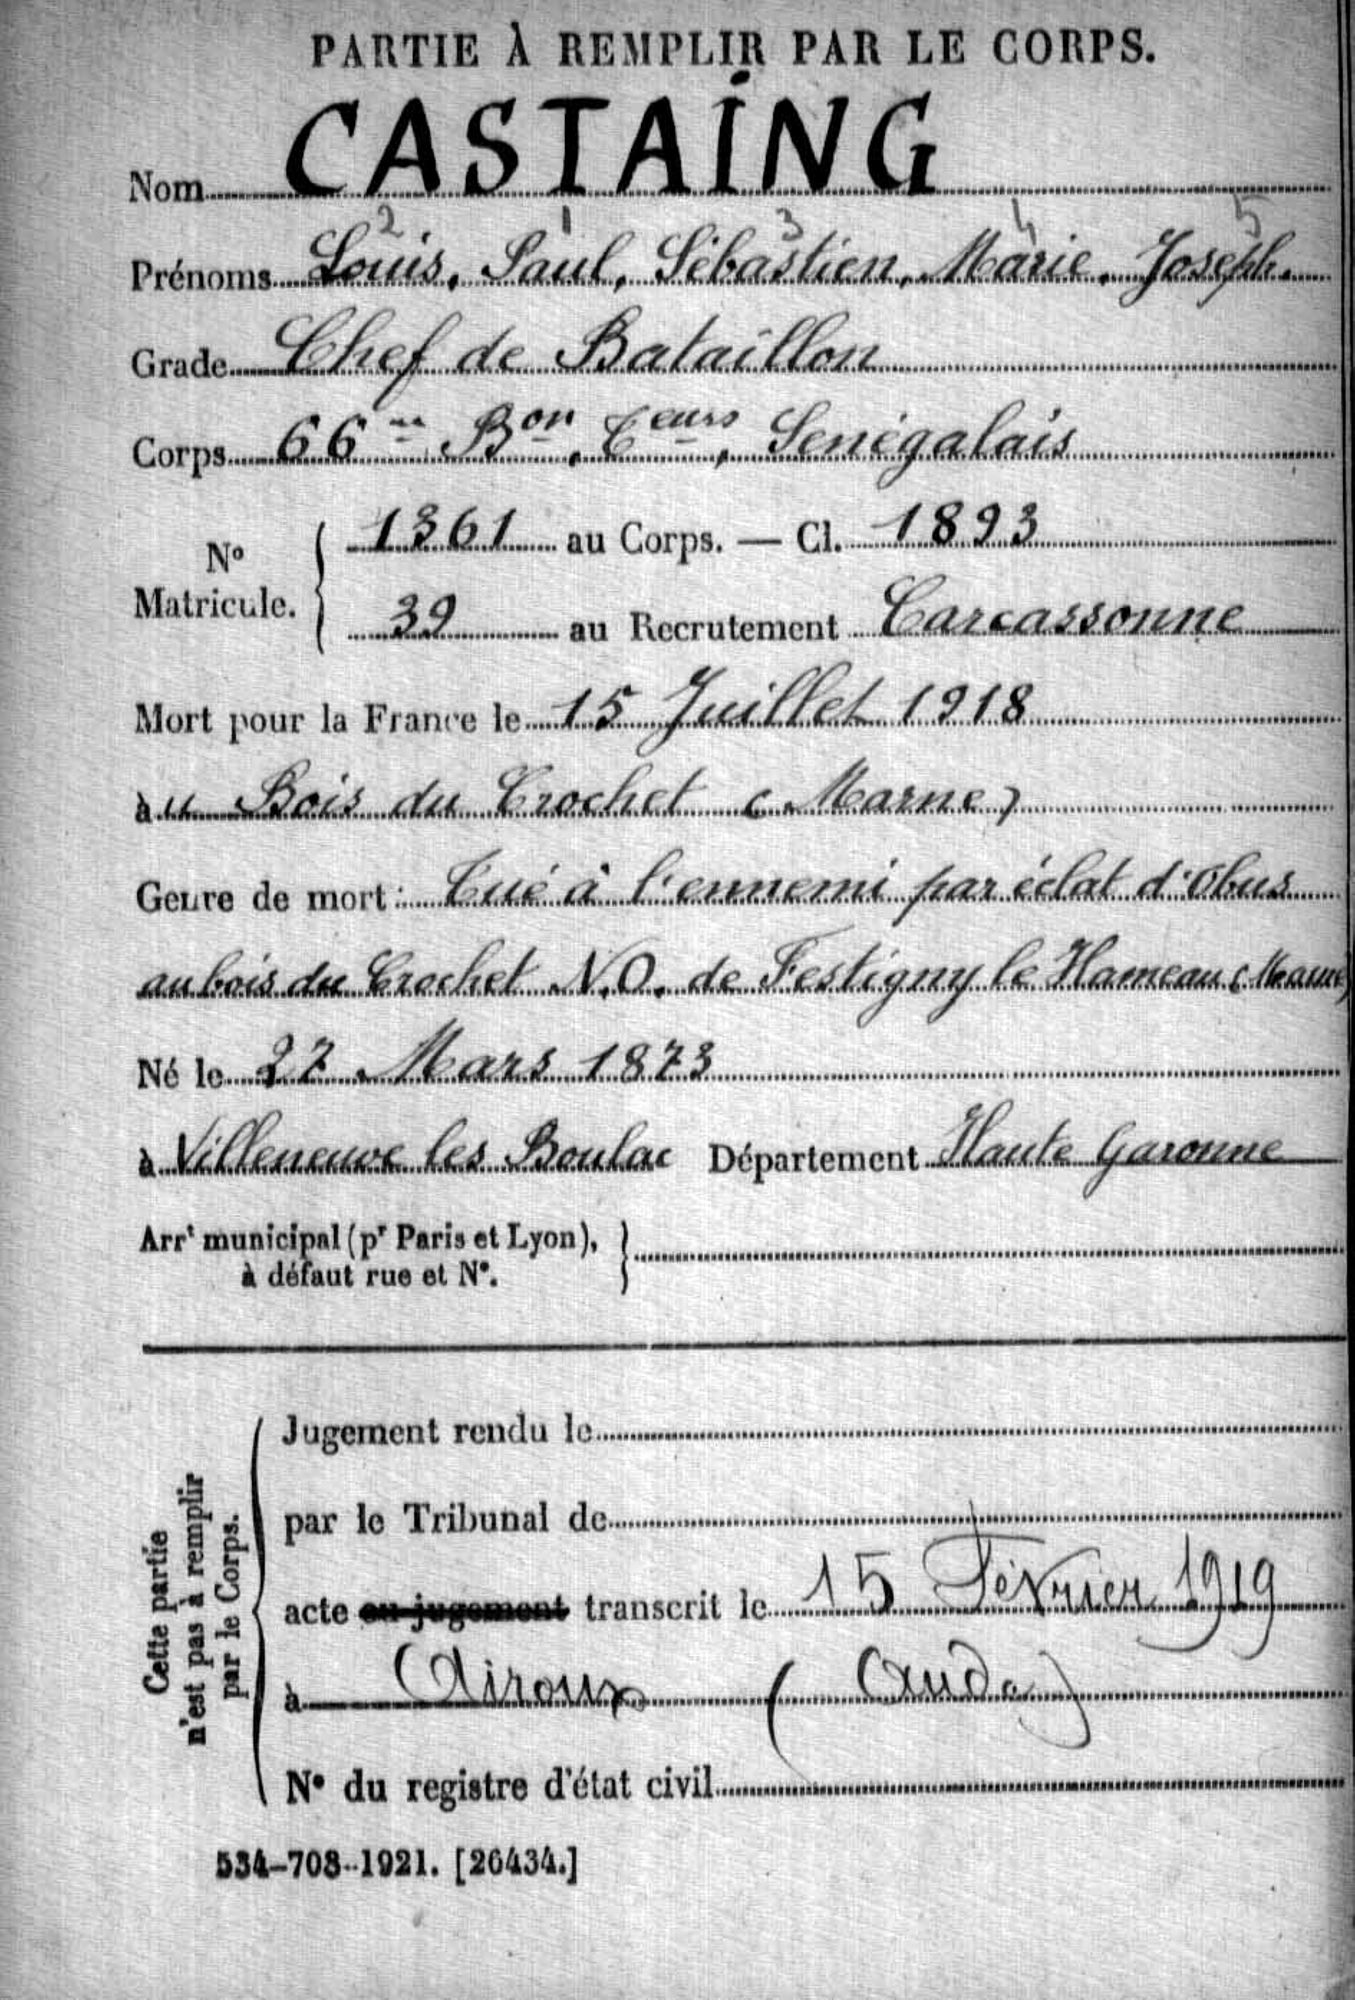 PARTIE À REMPLIR PAR LE CORPS.
Nom CASTAING
2 1 3 4 5
Prénoms Louis, Paul, Sébastien, Marie, Joseph.
Grade Chef de Bataillon
Corps 66me Bon, Ceurs, Senégalais
No Matricule. { 1361 au Corps. — Cl. 1893
39 au Recrutement Carcassonne
Mort pour la France le 15 Juillet 1918
àu Bois du Crochet (Marne)
Genre de mort : Tué à l'ennemi par éclat d'Obus
au bois du Crochet N.O. de Festigny le Hameau (Marne)
Né le 27 Mars 1873
à Villeneuve les Boulac Département Haute Garonne
Arrt municipal (pr Paris et Lyon), }
à défaut rue et No.
Cette partie
n'est pas à remplir
par le Corps.
Jugement rendu le
par le Tribunal de
acte ou jugement transcrit le 15 Février 1919
à Airoux (Aude)
No du registre d'état civil
534-708-1921. [26434.]